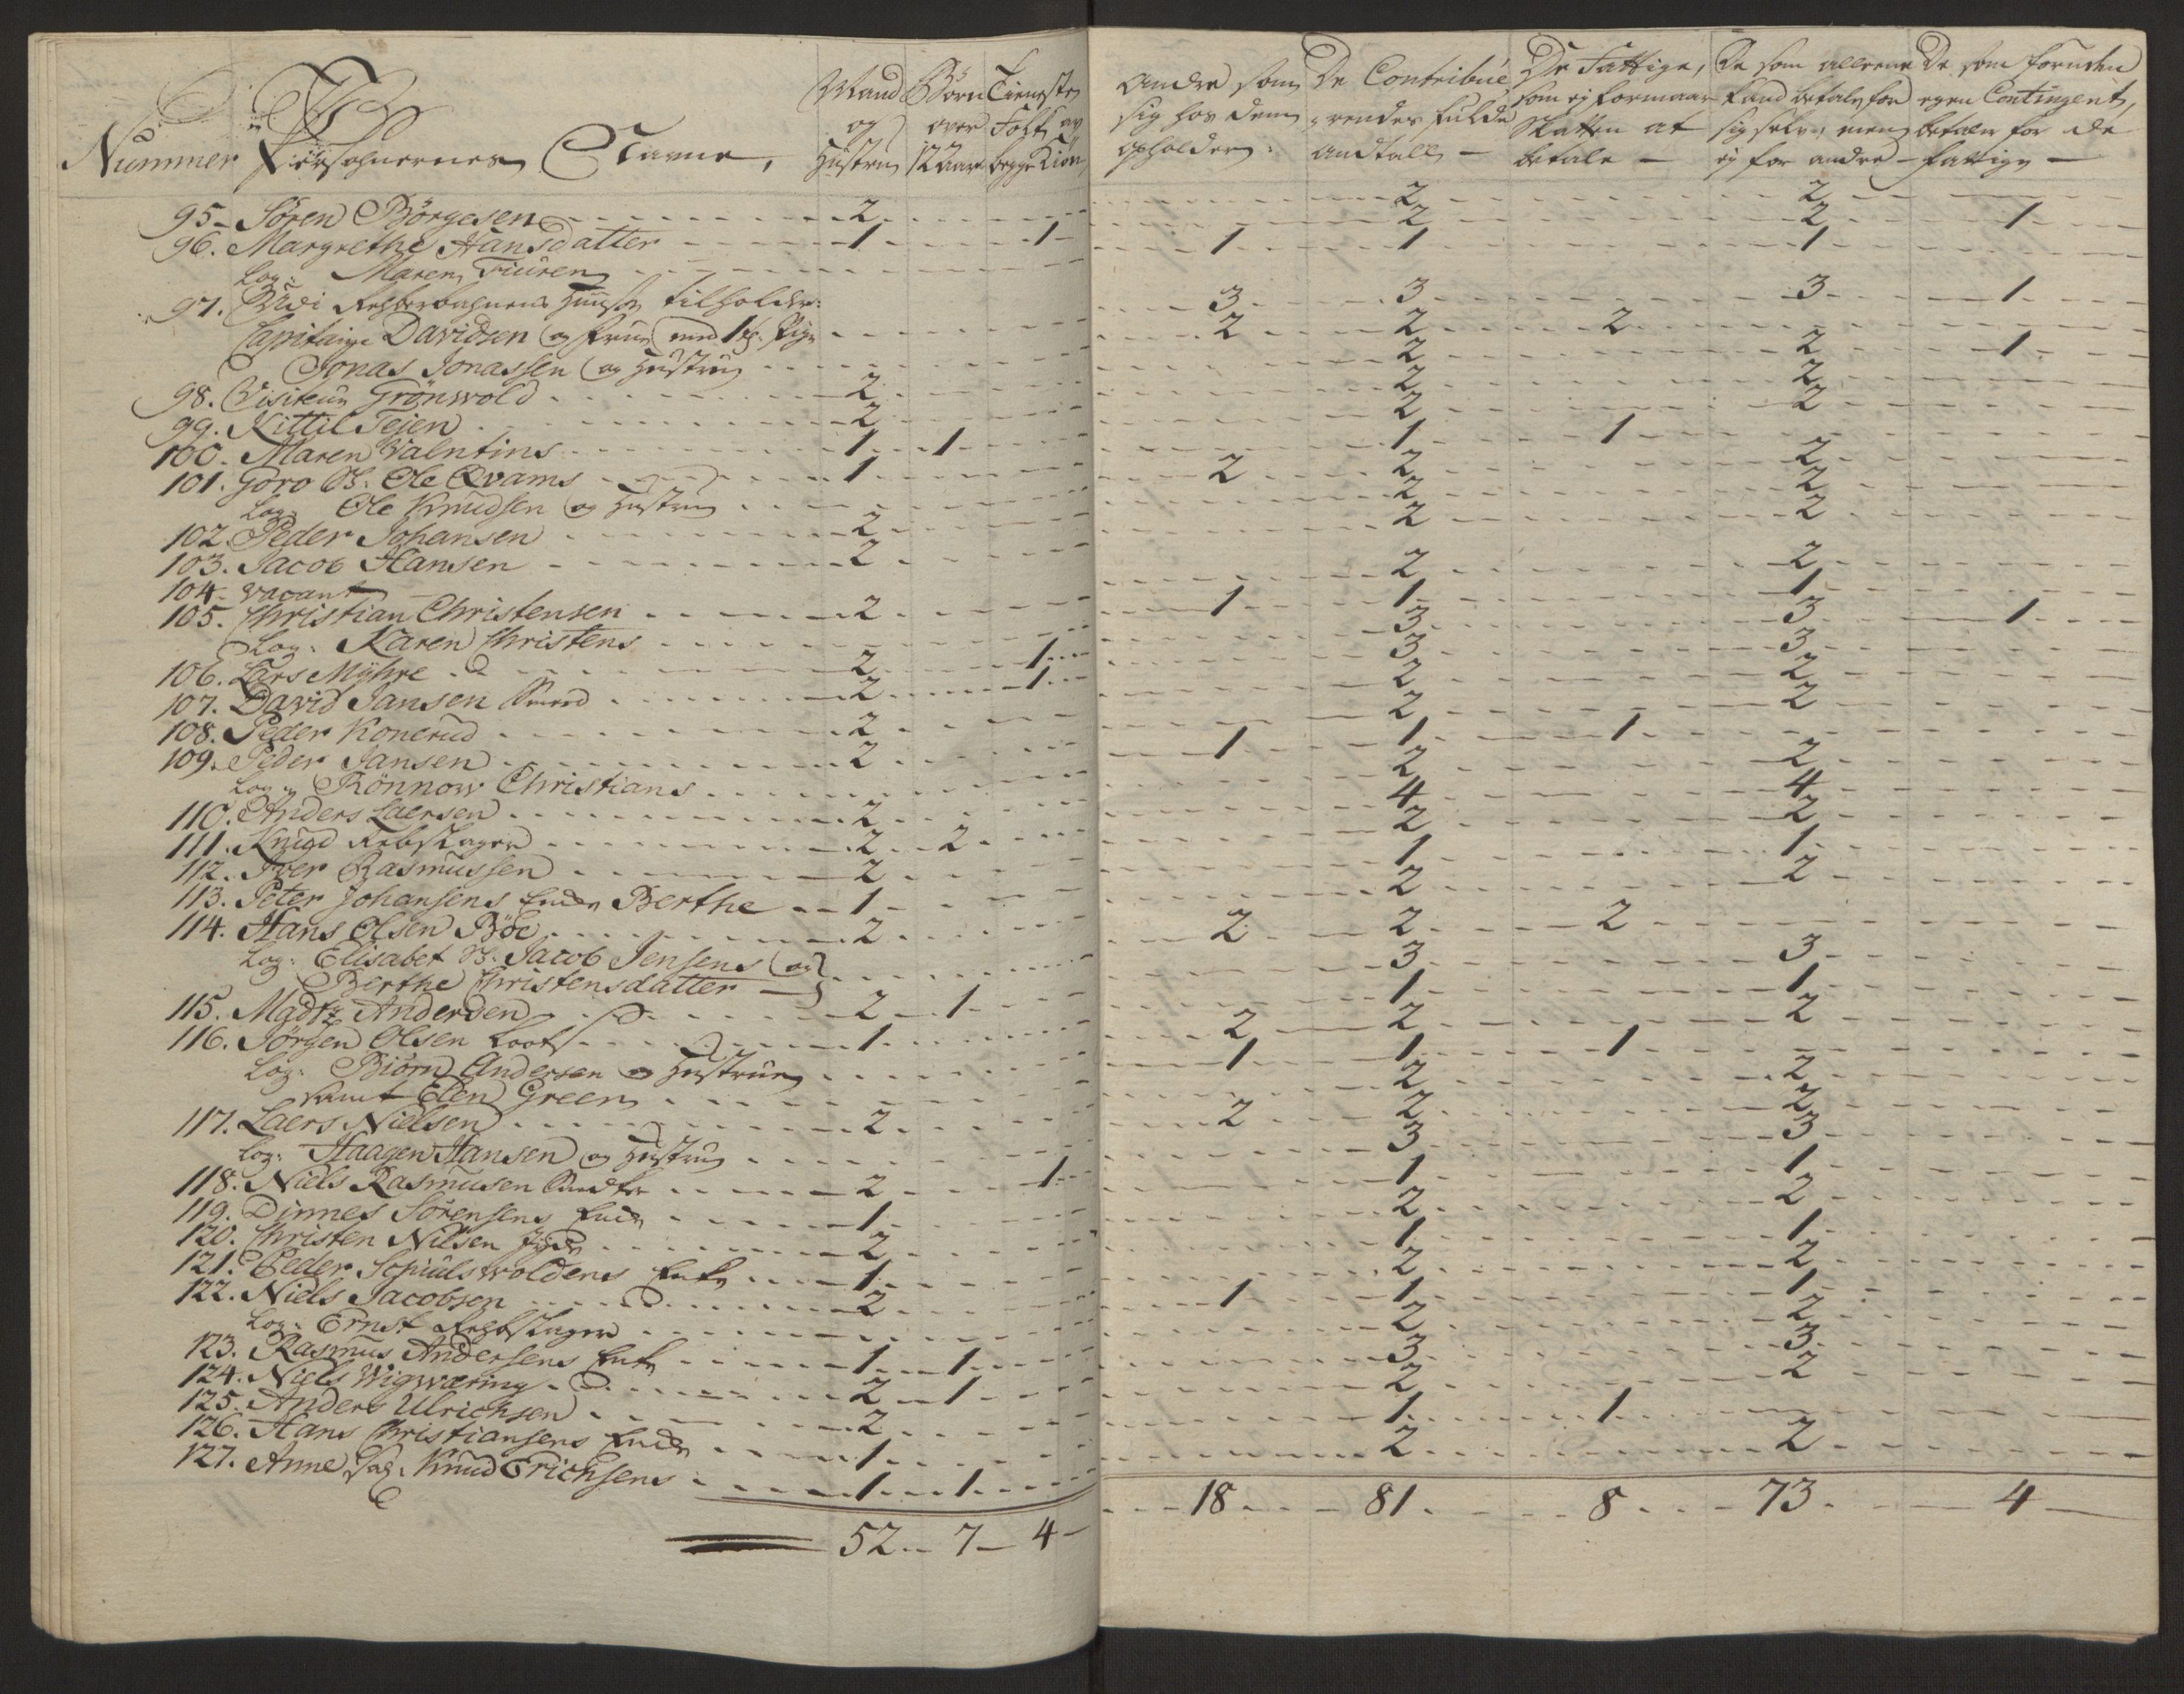 Nummer Persohnernes Navne, Mand og Hustru Börn over 12 Aar Tieneste Folk av begge Kiön Andre som sig hos dem opholder De Contribuerendes fulde andtall De Fattige, som ej formaar Skatten at betale De som alleene kand betale for sig selv, men ej for andre De som foruden egen Contingent, betaler for de fattige
95 Sören Börgesen 2 2 2
96. Margrethe Hansdatter 1 1 2 2 1
Log: Maren Fiuren 1 1 1
97. Udi Huuse tilholder:
Capitaine Davidsen og Frue med 1 Pige 3 3 3 1
Jonas Jonassen og Hustru 2 2 2
98. Visiteur Grönwold 2 2 2 1
99. Kittil Tejen 2 2 2
100. Maren Valentins 1 1 2 2
101. Goro S. Ole Qvams 1 1 1
Log: Ole Knudsen og Hustru 2 2 2
102. Peder Johansen 2 2 2
103. Jacob Hansen 2 2 2
104. vacant
105. Christian Christensen 2 2 2
Log: Karen Christens 1 1 1
106. Lars Myhre 2 1 3 3 1
107. David Jansen Smed 2 1 3 3
108. Peder Konerud 2 2 2
109. Peder Jansen 2 2 2
Log: Rönnow Christians 1 1 1
110. Anders Laersen 2 2 2
111. Knud Rebslager 2 2 4 4
112. Iver Rasmussen 2 2 2
113. Peter Johansens Enke Berthe 1 1 1
114. Hans Olsen Böe 2 2 2
Log: Elisabet S. Jacob Jensens og
Berthe Christensdatter 2 2 2
115. Madtz Andersen 2 1 3 3
116. Jörgen Olsen Loots 1 1 1
Log: Biörn Andersen og Hustrue 2 2 2
samt Elen Green 1 1 1
117. Laers Nielsen 2 2 2
Log: Haagen Hansen og Hustru 2 2 2
118. Niels Rasmusen 2 1 3 3
119. Dinnes Sörensens Enke 1 1 1
120. Christen Nilsen Jyde 2 2 2
121. Peder Schiulsvoldens Enke 1 1 1
122. Niels Jacobsen 2 2 2
Log: Ernst Rebslager 1 1 1
123. Rasmus Andersens Enke 1 1 2 2
124. Niels Wigwæring 2 1 3 3
125. Anders Ulrichsen 2 2 2
126. Hans Christiansens Enke 1 1 1
127. Anne Sal: Knud Erichsens 1 1 2 2
52 7 4 18 81 8 73 4